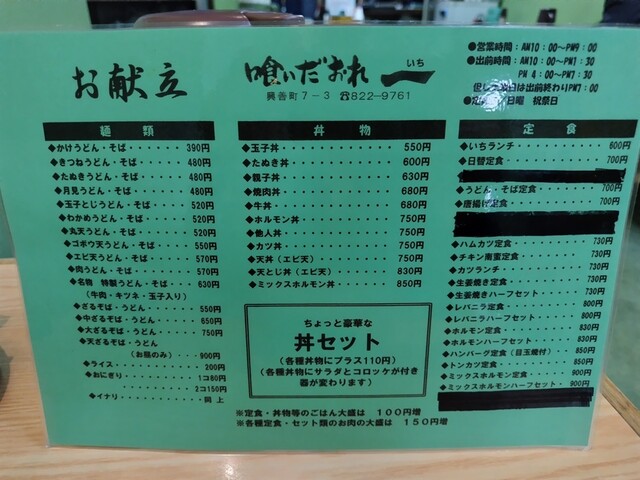 お献立
喰いだおれ 一 いち
興善町7-3 ☎822-9761
●営業時間：AM10：00～PM9：00
●出前時間：AM10：00～PM1：30
PM 4：00～PM7：30
は出前終わりPM7：00
日曜 祝祭日
麺類
◆かけうどん・そば・・・・・・・390円
◆きつねうどん・そば・・・・・・480円
◆たぬきうどん・そば・・・・・・480円
◆月見うどん・そば・・・・・・・480円
◆玉子とじうどん・そば・・・・・520円
◆わかめうどん・そば・・・・・・520円
◆丸天うどん・そば・・・・・・・520円
◆ゴボウ天うどん・そば・・・・・550円
◆エビ天うどん・そば・・・・・・570円
◆肉うどん・そば・・・・・・・・570円
◆名物 特製うどん・そば・・・・630円
（牛肉・キツネ・玉子入り）
◆ざるそば・うどん・・・・・・・550円
◆中ざるそば・うどん・・・・・・650円
◆大ざるそば・うどん・・・・・・750円
◆天ざるそば・うどん
（お昼のみ）・・・900円
◆ライス・・・・・・・・・・・・200円
◆おにぎり・・・・・・・・1コ80円
2コ150円
◆イナリ・・・・・・・・・・同上
丼物
◆玉子丼・・・・・・・・・・・・550円
◆たぬき丼・・・・・・・・・・・600円
◆親子丼・・・・・・・・・・・・630円
◆焼肉丼・・・・・・・・・・・・680円
◆牛丼・・・・・・・・・・・・・680円
◆ホルモン丼・・・・・・・・・・750円
◆他人丼・・・・・・・・・・・・750円
◆カツ丼・・・・・・・・・・・・750円
◆天丼（エビ天）・・・・・・・・750円
◆天とじ丼（エビ天）・・・・・・830円
◆ミックスホルモン丼・・・・・・850円
ちょっと豪華な
丼セット
（各種丼物にプラス110円）
（各種丼物にサラダとコロッケが付き
器が変わります）
※定食・丼物等のごはん大盛は 100円増
※各種定食・セット類のお肉の大盛は 150円増
定食
◆いちランチ・・・・・・・・・・600円
◆日替定食・・・・・・・・・・・700円
◆うどん・そば定食・・・・・・・700円
◆唐揚げ定食・・・・・・・・・・700円
◆ハムカツ定食・・・・・・・・・730円
◆チキン南蛮定食・・・・・・・・730円
◆カツランチ・・・・・・・・・・730円
◆生姜焼き定食・・・・・・・・・730円
◆生姜焼きハーフセット・・・・・730円
◆レバニラ定食・・・・・・・・・800円
◆レバニラハーフセット・・・・・800円
◆ホルモン定食・・・・・・・・・800円
◆ホルモンハーフセット・・・・・800円
◆ハンバーグ定食（目玉焼付）・・800円
◆トンカツ定食・・・・・・・・・800円
◆ミックスホルモン定食・・・・・900円
◆ミックスホルモンハーフセット・・900円